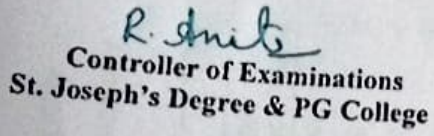 R. Anita
Controller of Examinations
St. Joseph's Degree & PG College